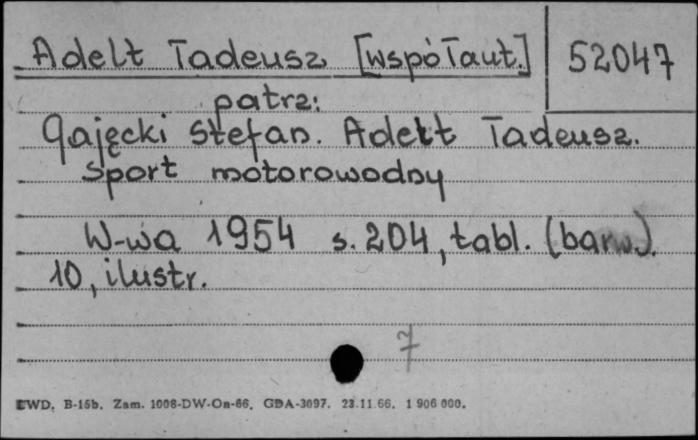 Adelt Tadeusz [współaut.] 52047
patrz:
Gajęcki Stefan. Adelt Tadeusz.
Sport motorowodny
W-wa 1954 s. 204, tabl. (barw).
10, ilustr.
7
CWD. B-15b. Zam. 1006-DW-On-66. GDA-3097. 23.11.66. 1 906 000.